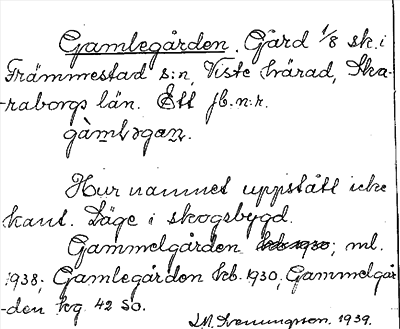 Gamlegården. Gård 1/8 sk. i
Främmestad s:n, Viste härad, Ska-
-raborgs län. Ett jb.n:r.
gàmləgaɳ.
Hur namnet uppstått icke
känt. Läge i skogsbygd.
Gammelgården kb 1930; ml.
1938; Gamlegården kb. 1930, Gammelgår-
-den kg 42 SO.
Svenungsson. 1939.